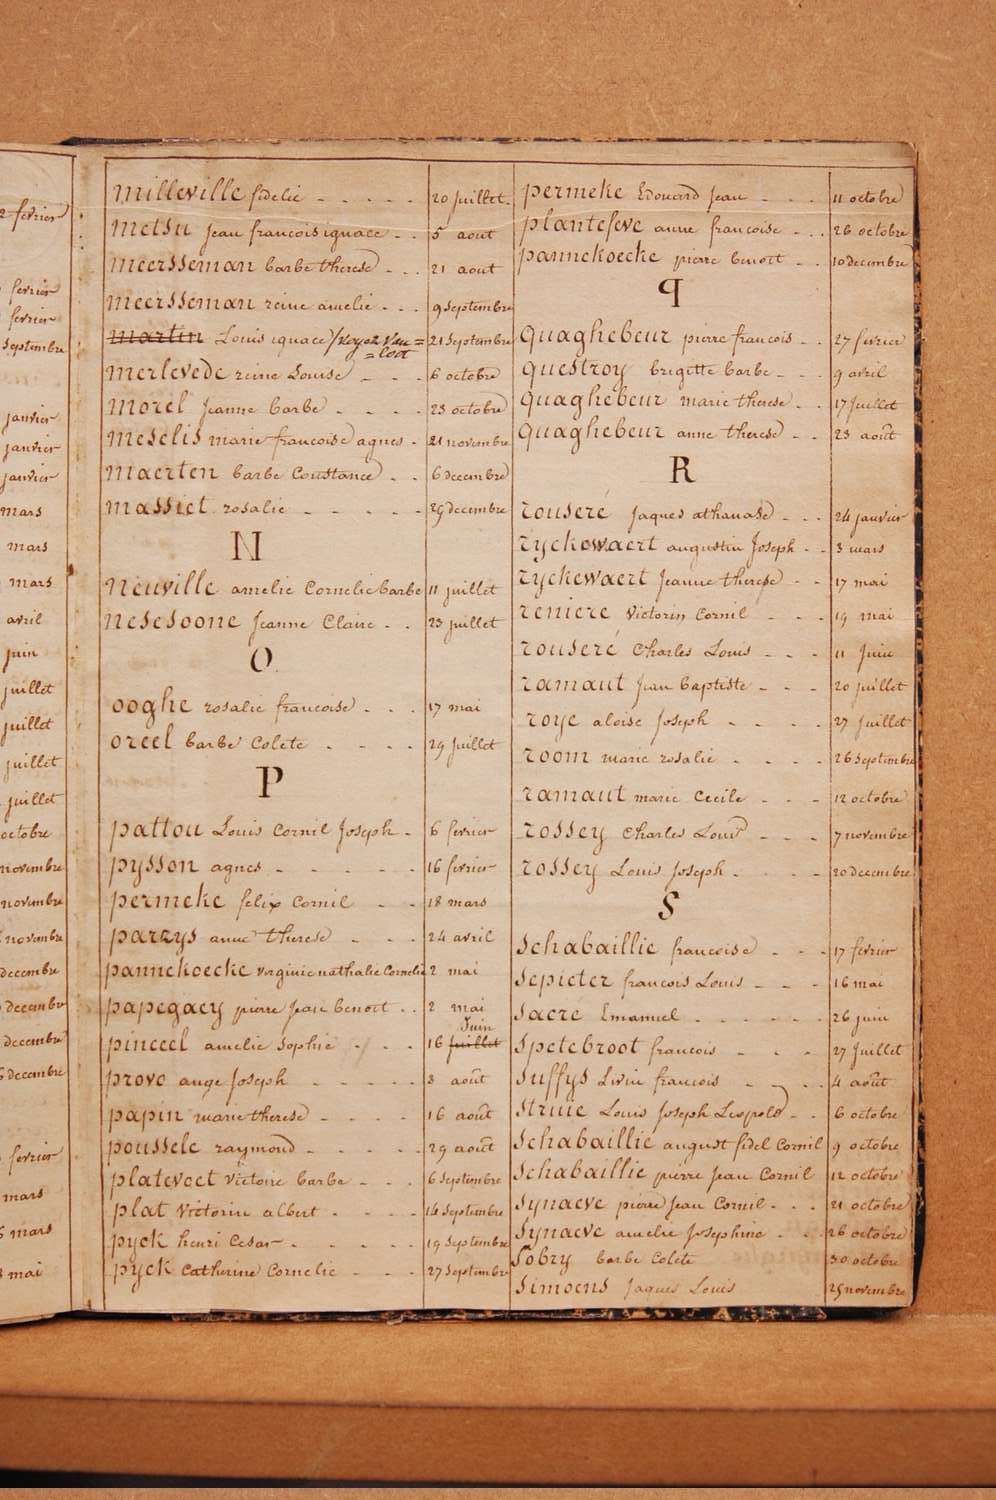 2 fevrier
fevrier
fevrier
septembre
janvier
janvier
janvier
mars
mars
mars
avril
juin
juillet
juillet
juillet
juillet
octobre
novembre
novembre
novembre
decembre
decembre
decembre
decembre
fevrier
mars
mars
mai
milleville fidelie - - - - - 20 juillet
metsu jean francois ignace - - 5 aout
meersseman barbe therese - - - 21 aout
meersseman reine amelie - - - 9 septembre
martin Louis ignace)/voyez Van= 21 septembre
=loot
merlevede reine Louise - - - 6 octobre
morel jeanne barbe - - - - 23 octobre
meselis marie francoise agnes - 21 novembre
maerten barbe Constance - - 6 decembre
massiet rosalie - - - - - 29 decembre
N
neuville amelie Cornelie barbe 11 juillet
nesesoone jeanne Claire - - 23 juillet
O
ooghe rosalie francoise - - - 17 mai
oreel barbe Colete - - - - 29 juillet
P
pattou Louis Cornil Joseph - 6 fevrier
pysson agnes - - - - - - 16 fevrier
permeke felix Cornil - - 18 mars
parzys anne therese - - - 24 avril
pannekoecke virginie nathalie Cornelie 2 mai
papegaey pierre jean benoit - - 2 mai
juin
pinceel amelie sophie - - - 16 juillet
provo ange joseph - - - - - 3 août
papin marie therese - - - - 16 août
poussele raymond - - - - - 29 août
platevoet victoire barbe - - - 6 septembre
plat victorin albert - - - - 14 septembre
pyck henri Cesar - - - - - 19 septembre
pyck catherine Cornelie - - - 27 septembre
permeke Edouard jean - - - 11 octobre
plantefeve anne francoise - - - 26 octobre
pannekoecke pierre benoit - - 10 decembre
q
quaghebeur pierre francois - - 27 fevrier
questroy brigitte barbe - - - 9 avril
quaghebeur marie therese - - 17 juillet
quaghebeur anne therese - - 23 août
R
rouseré jaques athanase - - - 24 janvier
ryckewaert augustin joseph - - 3 mars
ryckewaert jeanne therese - - 17 mai
reniere victorin Cornil - - - 19 mai
rouseré charles Louis - - - 11 juin
ramaut jean baptiste - - - 20 juillet
roye aloise joseph - - - - 27 juillet
room marie rosalie - - - - 26 septembre
ramaut marie Cecile - - - 12 octobre
rossey charles Louis - - - 7 novembre
rossey Louis joseph - - - - 20 decembre
S
schabaillie francoise - - - 17 fevrier
sepieter francois Louis - - - 16 mai
sacre Emanuel - - - - - - 26 juin
spetebroot francois - - - 27 juillet
suffys Livin francois - - - 4 août
strure Louis joseph Leopold - - 6 octobre
schabaillie august fidel Cornil 9 octobre
schabaillie pierre jean Cornil 12 octobre
synaeve pierre jean Cornil - - - 21 octobre
synaeve amelie josephine - - - 26 octobre
sobry barbe Colete 30 octobre
simoens jaques Louis 25 novembre